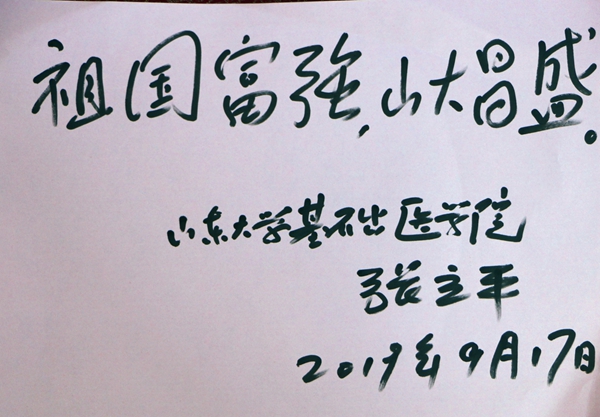 祖国富强,山大昌盛。
山东大学基础医学院
张立平
2019年9月17日